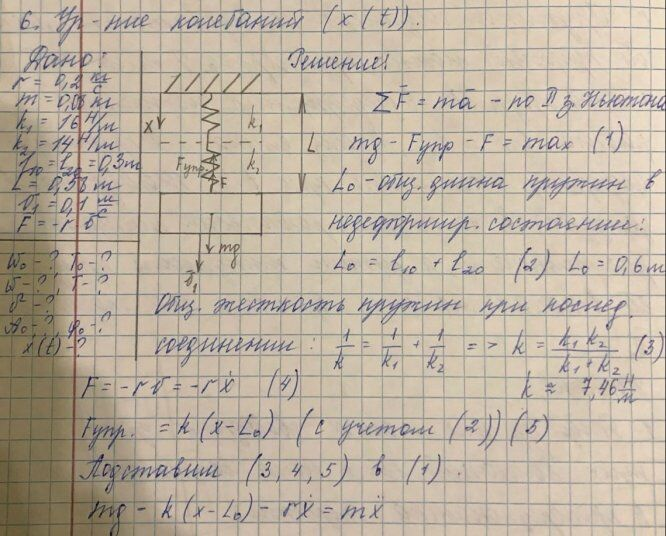 6. Ур-ние колебаний (x(t)).
Дано:
r = 0,2 кг/с
m = 0,08 кг
k₁ = 16 Н/м
k₂ = 14 Н/м
l₁₀ = l₂₀ = 0,3 м
L = 0,58 м
v₁ = 0,1 м/с
F̄ = -r · v̄
ω₀ - ? T₀ - ?
ω - ?, T - ?
A₀ - ?, φ₀ - ?
x(t) - ?
x
k₁
k₂
L
Fупр.
F
mg
v̄₁
Решение:
ΣF̄ = mā - по II з. Ньютона
mg - Fупр - F = max (1)
L₀ - общ. длина пружин в
недеформир. состоянии:
L₀ = l₁₀ + l₂₀ (2) L₀ = 0,6 м
Общ. жесткость пружин при послед.
соединении: 1/k = 1/k₁ + 1/k₂ => k = k₁k₂/(k₁+k₂) (3)
k ≈ 7,46 Н/м
F = -rv = -rẋ (4)
Fупр. = k(x-L₀) (с учетом (2)) (5)
Подставим (3, 4, 5) в (1):
mg - k(x-L₀) - rẋ = mẍ